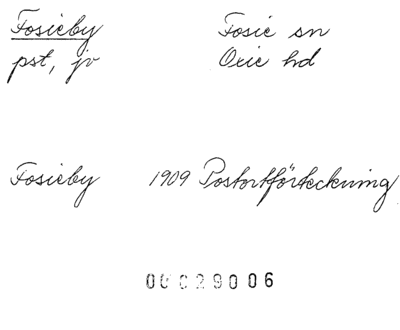 Fosieby Fosie sn
pst, jv Oxie hd
Fosieby 1909 Postortförteckning
00029006